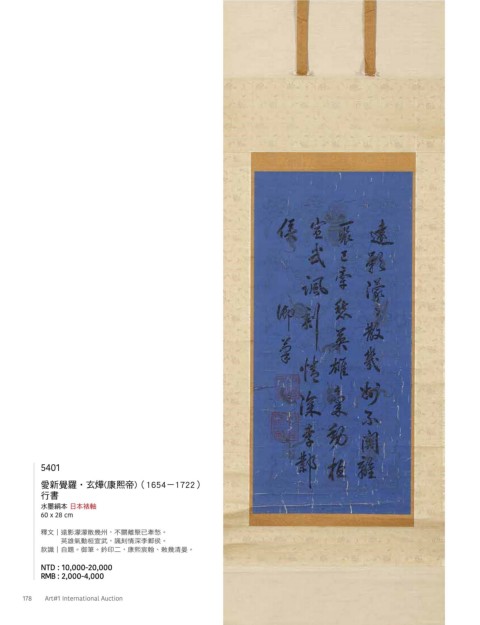 遠影濛〻散幾州不關離
聚已牽愁英雄氣動桓
宣武諷刺情深李鄴
侯 御筆
5401
愛新覺羅・玄燁(康熙帝)（1654－1722）
行書
水墨絹本 日本裱軸
60 x 28 cm
釋文｜遠影濛濛散幾州，不關離聚已牽愁。
英雄氣動桓宣武，諷刺情深李鄴侯。
款識｜自題。御筆。鈐印二、康熙宸翰、敕幾清晏。
NTD : 10,000-20,000
RMB : 2,000-4,000
178 Art#1 International Auction